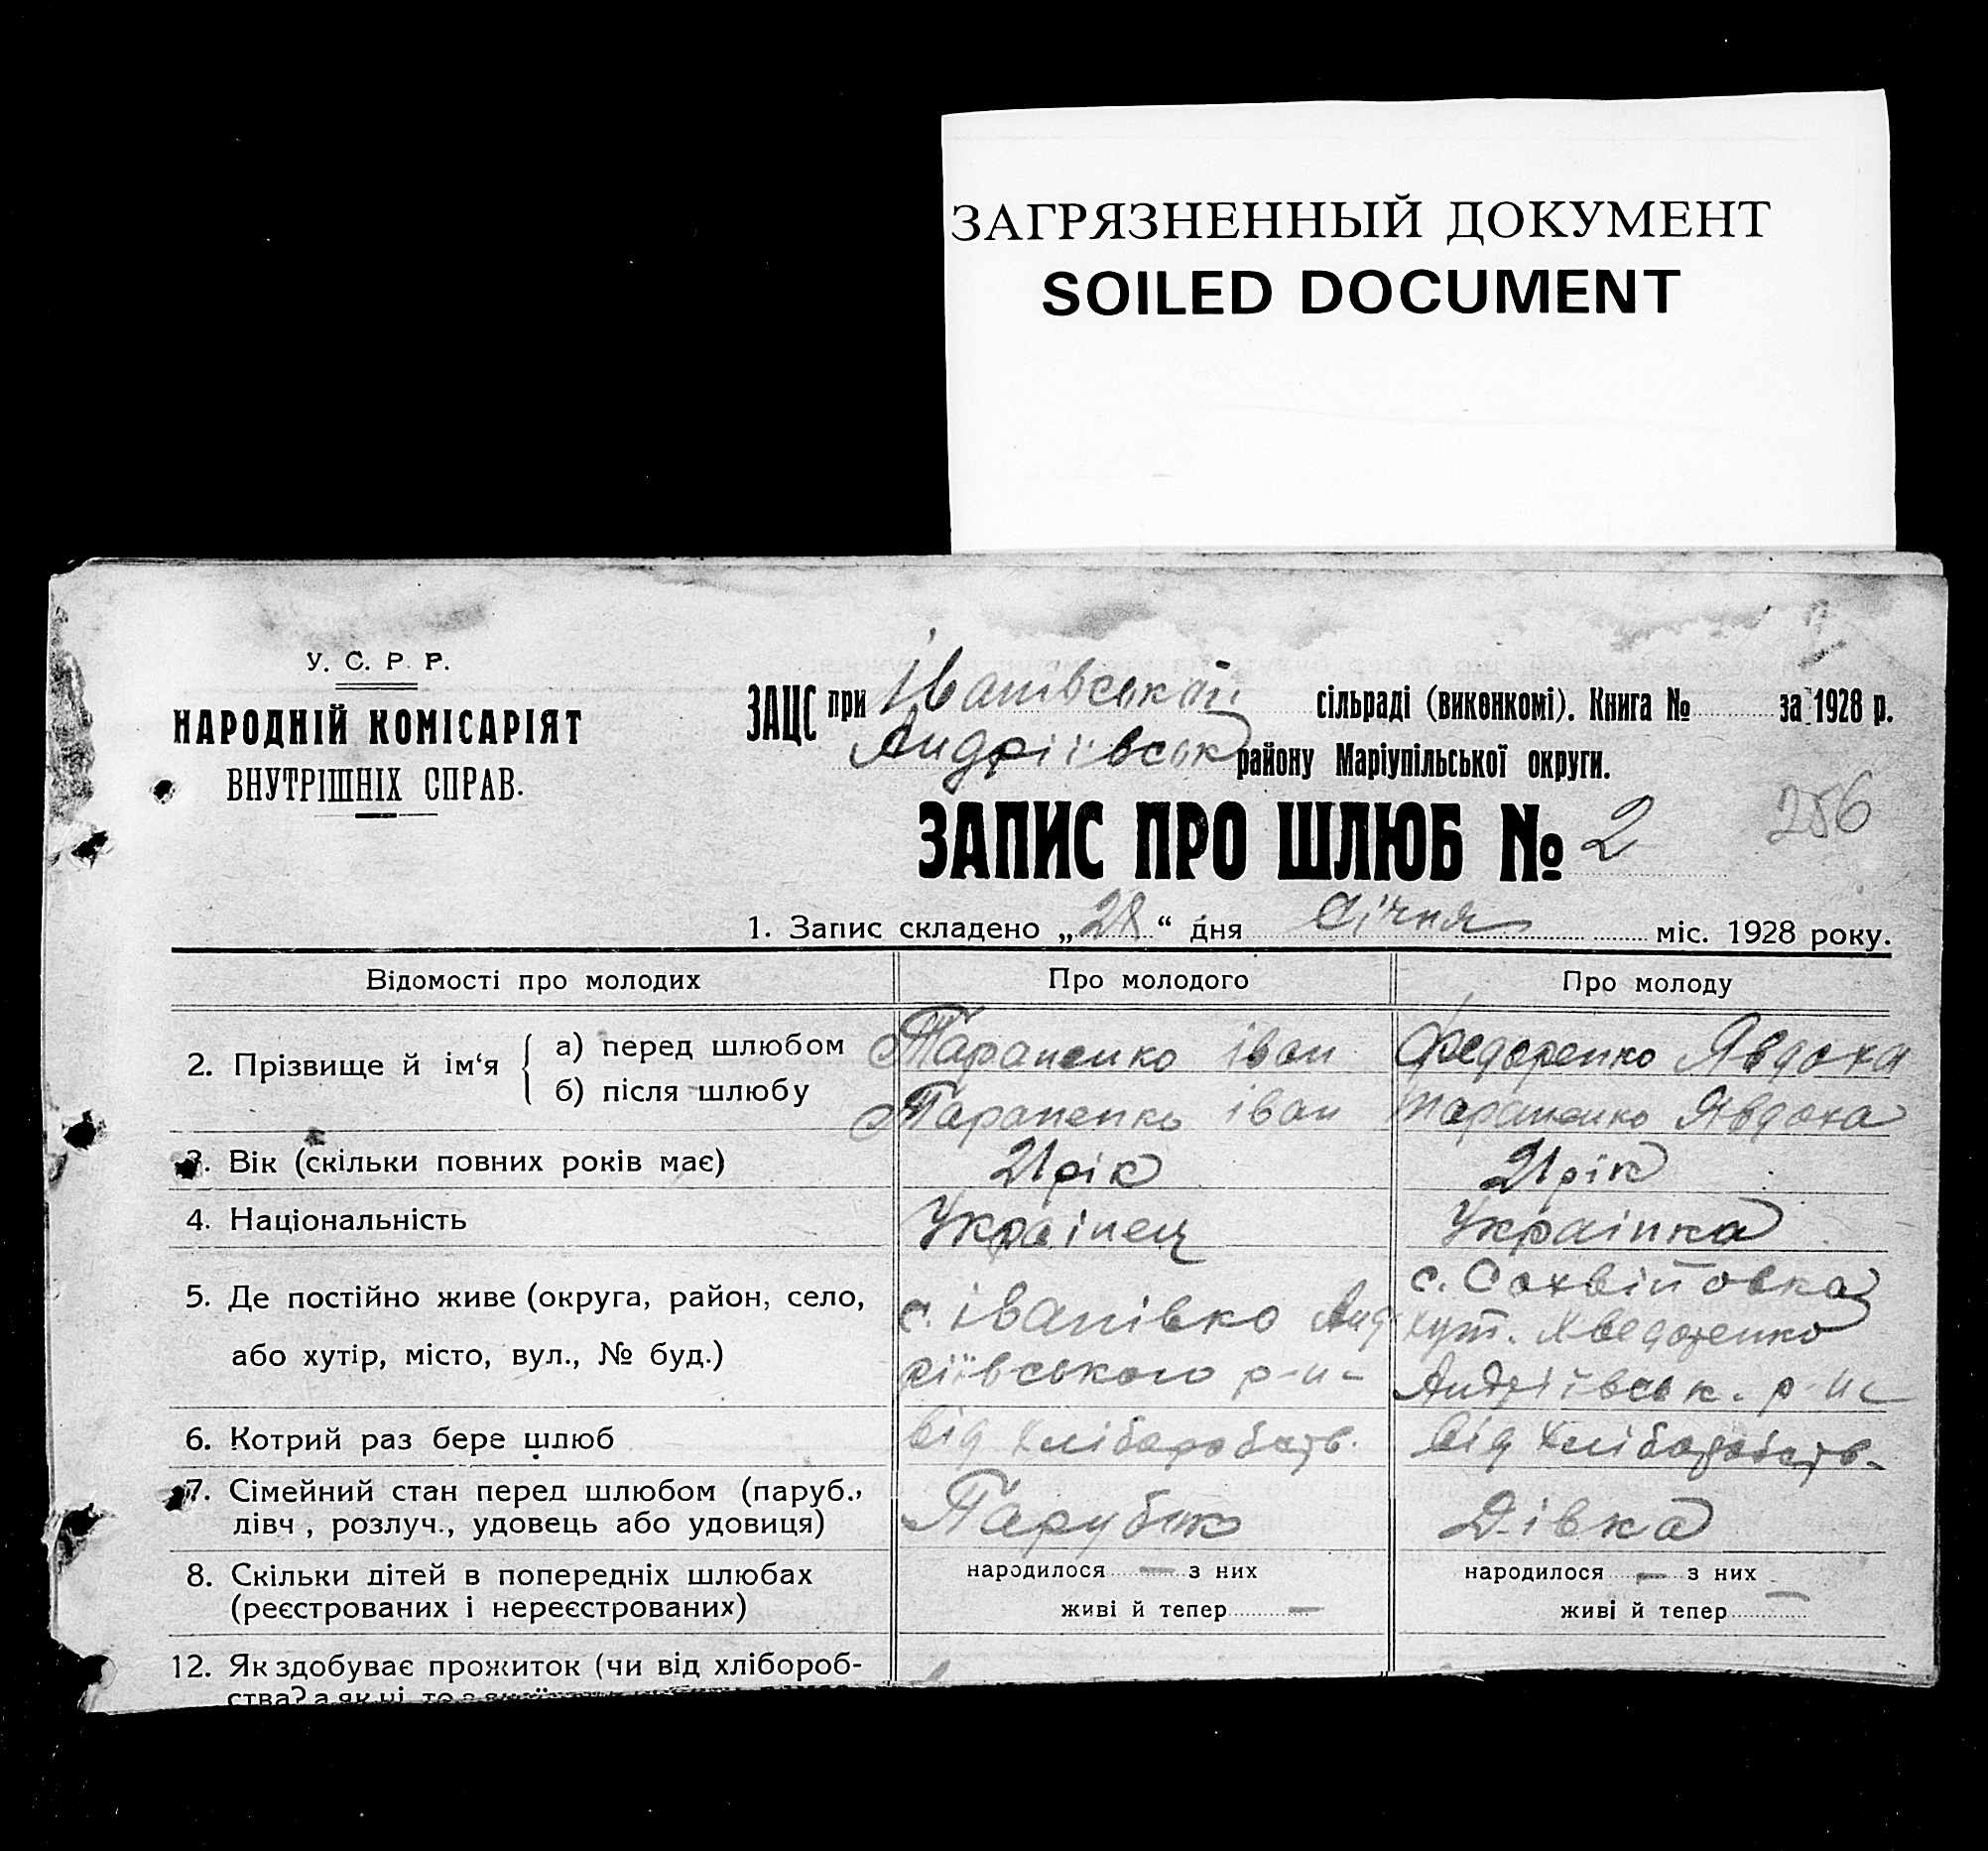 ЗАГРЯЗНЕННЫЙ ДОКУМЕНТ
SOILED DOCUMENT
У. С. Р. Р.
НАРОДНІЙ КОМІСАРІЯТ
ВНУТРІШНІХ СПРАВ.
ЗАЦС при Іванівській сільраді (виконкомі). Книга № за 1928 р.
Андріївськ району Маріупільської округи.
ЗАПИС ПРО ШЛЮБ № 2
256
1. Запис складено „28“ дня Січня міс. 1928 року.
Відомості про молодих Про молодого Про молоду
2. Прізвище й ім‘я а) перед шлюбом Тараненко Іван Федоренко Явдоха
б) після шлюбу Тараненко Іван Тараненко Явдоха
3. Вік (скільки повних років має) 21 рік 21 рік
4. Національність Українець Українка
5. Де постійно живе (округа, район, село,
або хутір, місто, вул., № буд.)
с. Іванівко Анд
ріївського р-н-
с.
хут.
Андріївськ. р-н
6. Котрий раз бере шлюб від хліборобств. від хліборобств.
7. Сімейний стан перед шлюбом (паруб.,
дівч , розлуч., удовець або удовиця) Парубок Дівка
8. Скільки дітей в попередніх шлюбах народилося — з них народилося — з них
(реєстрованих і нереєстрованих) живі й тепер — живі й тепер —
12. Як здобуває прожиток (чи від хлібороб-
ства? а як ні, то з